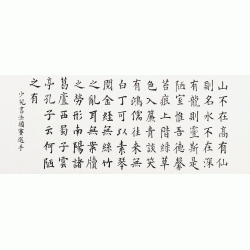 山不在高有仙
則名水不在深
有龍則靈斯是
陋室惟吾德馨
苔痕上階綠草
色入簾青談笑
有鴻儒往來無
白丁可以素琴
閱金經無絲竹
之亂耳無案牘
之勞形南陽諸
葛廬西蜀子雲
亭孔子云何陋
之有
少兒書法賽選手